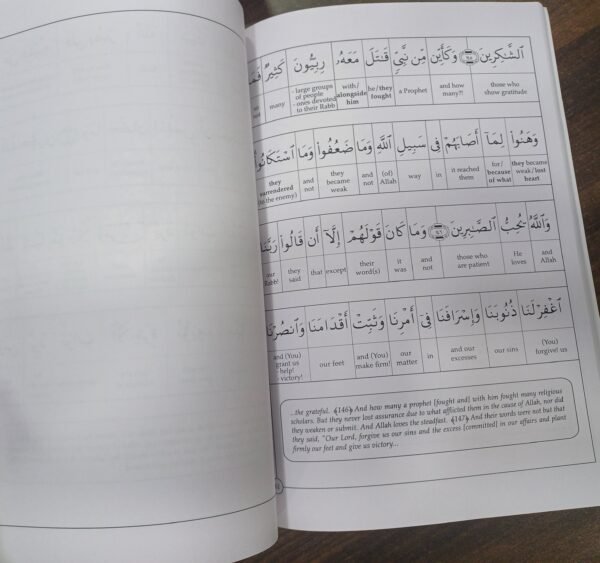 ٱلشَّـٰكِرِينَ ١٤٥ وَكَأَيِّن مِّن نَّبِىٍّ قَـٰتَلَ مَعَهُۥ رِبِّيُّونَ كَثِيرٌ
those who show gratitude | and how many?! | a Prophet | he/they fought | with/alongside him | - large groups of people - ones devoted to their Rabb | many
وَهَنُوا۟ لِمَآ أَصَابَهُمْ فِى سَبِيلِ ٱللَّهِ وَمَا ضَعُفُوا۟ وَمَا ٱسْتَكَانُوا۟
they became weak/lost heart | for/because of what | it reached them | in | way | (of) Allah | and not | they became weak | and not | they surrendered (to the enemy)
وَٱللَّهُ يُحِبُّ ٱلصَّـٰبِرِينَ ١٤٦ وَمَا كَانَ قَوْلَهُمْ إِلَّآ أَن قَالُوا۟ رَبَّنَا
and Allah | He loves | those who are patient | and not | it was | their word(s) | except | that | they said | our Rabb!
ٱغْفِرْ لَنَا ذُنُوبَنَا وَإِسْرَافَنَا فِىٓ أَمْرِنَا وَثَبِّتْ أَقْدَامَنَا وَٱنصُرْنَا
(You) forgive! us | our sins | and our excesses | in | our matter | and (You) make firm! | our feet | and (You) grant us help! victory!
...the grateful. ﴾146﴿ And how many a prophet [fought and] with him fought many religious
scholars. But they never lost assurance due to what afflicted them in the cause of Allah, nor did
they weaken or submit. And Allah loves the steadfast. ﴾147﴿ And their words were not but that
they said, "Our Lord, forgive us our sins and the excess [committed] in our affairs and plant
firmly our feet and give us victory...